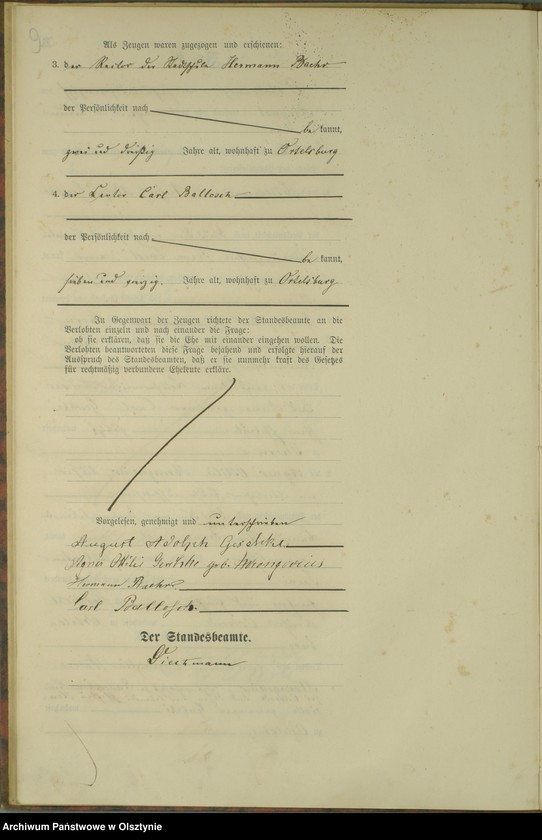 9
Als Zeugen waren zugezogen und erschienen:
3. der Rector der Stadtschule Hermann Bachr
der Persönlichkeit nach
be kannt,
zwei und dreißig Jahre alt, wohnhaft zu Ortelsburg
4. der Carl Ballosch
der Persönlichkeit nach
be kannt,
sieben und Jahre alt, wohnhaft zu Ortelsburg
In Gegenwart der Zeugen richtete der Standesbeamte an die
Verlobten einzeln und nach einander die Frage:
ob sie erklären, daß sie die Ehe mit einander eingehen wollen. Die
Verlobten beantworteten diese Frage bejahend und erfolgte hierauf der
Ausspruch des Standesbeamten, daß er sie nunmehr kraft des Gesetzes
für rechtmäßig verbundene Eheleute erkläre.
Vorgelesen, genehmigt und unterschrieben
August Adolph
Ottilie geb.
Hermann Bachr
Carl Ballosch.
Der Standesbeamte.
Archiwum Państwowe w Olsztynie